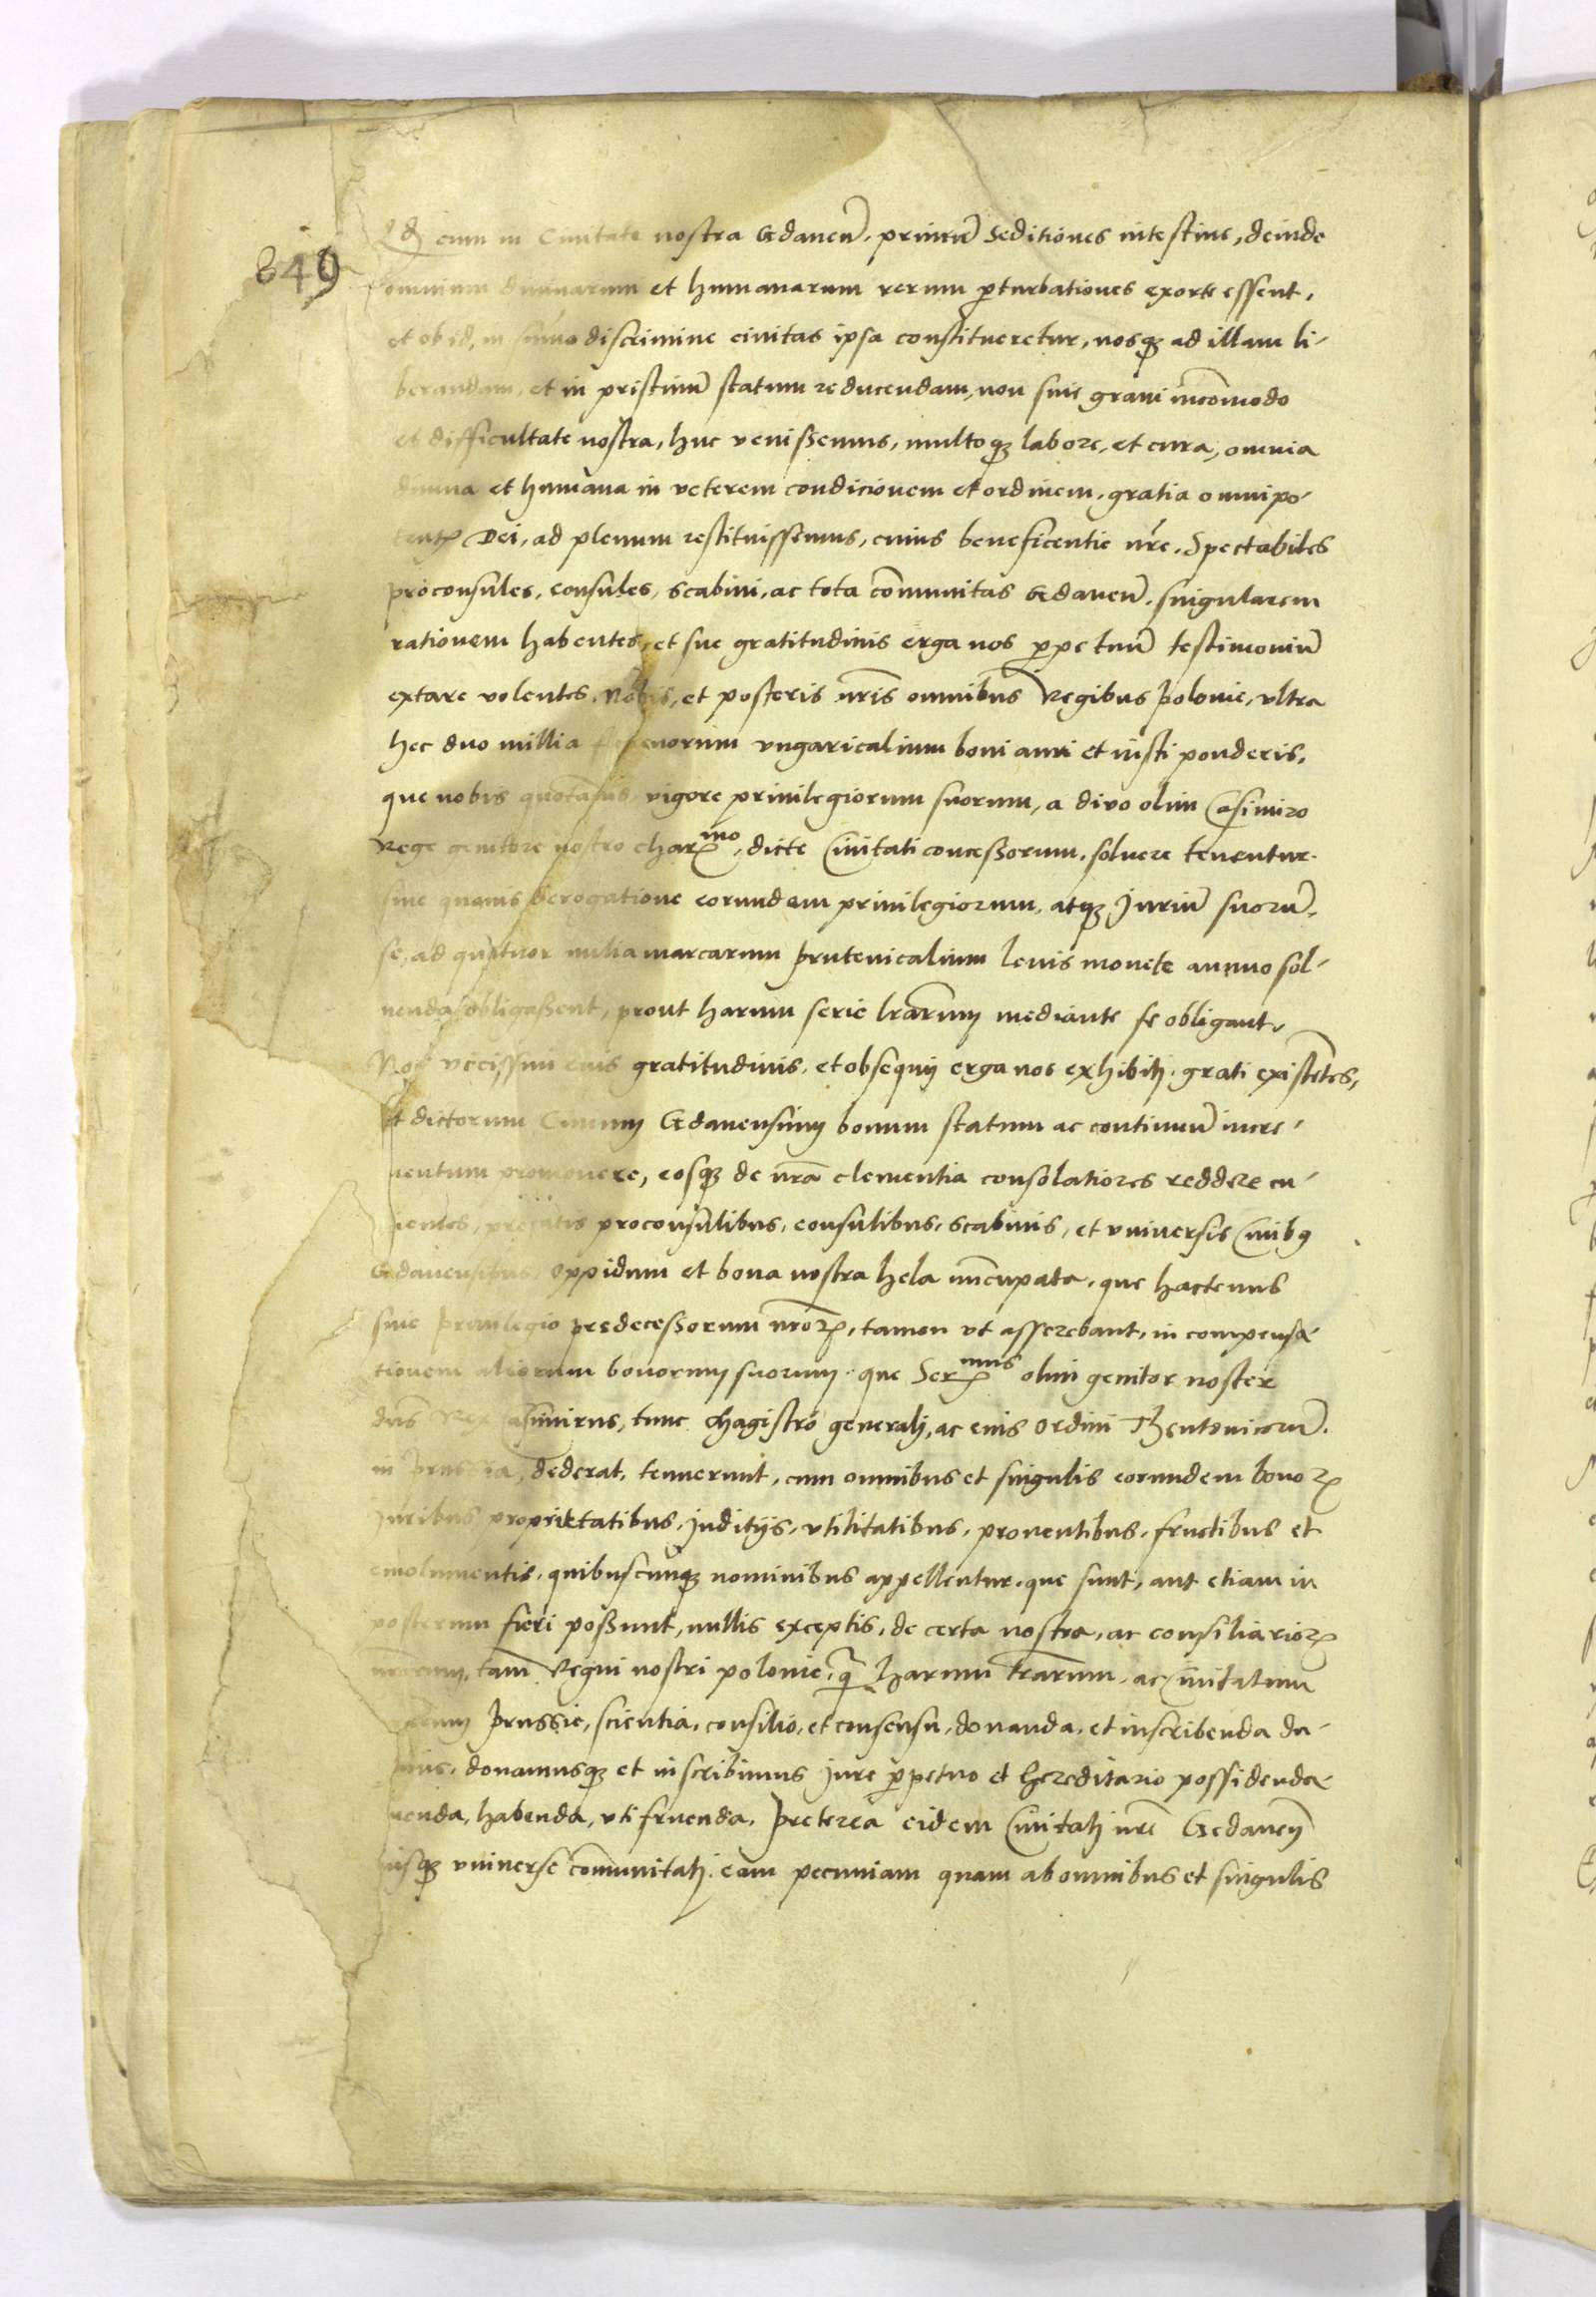 849
Qd cum in Civitate nostra Gedaneñ. primũ seditiones intestine, deinde
omnium divinarum et humanarum rerum ꝑturbationes exorte essent,
et ob id, in sũmo discrimine civitas ipsa constitueretur, nosqꝫ ad illam li-
berandam, et in pristinũ statum reducendam, non sine gravi incõmodo
et difficultate nostra, huc venissemus, multoqꝫ labore, et cura, omnia
divina et humana in veterem condicionem et ordinem, gratia omnipo-
tentꝭ Dei, ad plenum restituissemus, cuius beneficentie nr̃e. Spectabiles
proconsules, consules, scabini, ac tota cõmunitas Gedaneñ. singularem
rationem habentes, et sue gratitudinis erga nos ꝑpetuũ testimoniũ
extare volentes. Nobis, et posteris nr̃is omnibus Regibus Polonie, ultra
hec duo millia florenorum ungaricalium boni auri et iusti ponderis,
que nobis quotãnis vigore privilegiorum suorum, a divo olim Casimiro
Rege genitore nostro charꝫmo, dicte Civitati concessorum, solvere tenentur.
sine quavis derogatione eorundem privilegiorum, atqꝫ Juriũ suorũ,
se, ad quatuor milia marcarum prutenicalium levis monete annuo sol-
venda obligassent, prout harum serie lr̃arum mediante se obligant,
Nos vicissim eius gratitudinis, et obsequij erga nos exhibiti, grati existẽtes,
Et dictorum Civium Gedanensium bonum statum ac continuũ incre-
mentum promovere, eosqꝫ de nr̃a clementia consolatiores reddere cu-
pientes, prefatis proconsulibus, consulibus, scabinis, et universis Civibꝯ
Gedanensibus, oppidum et bona nostra hela nũcupata, que hactenus
sine Privilegio predecessorum nr̃oꝝ, tamen ut asserebant, in compensa-
tionem aliorum bonorum suorum. que Serꝫmus olim genitor noster
dñs Rex Casimirus, tunc Magistro generali, ac eius ordini Theutonicorũ.
in Prussia, dederat, tenuerunt, cum omnibus et singulis eorundem bonoꝝ
Juribus proprietatibus, Juditijs, utilitatibus, proventibus, fructibus et
emolumentis, quibuscunqꝫ nominibus appellentur, que sunt, aut etiam in
posterum fieri possunt, nullis exceptis, de certa nostra, ac consiliarioꝝ
nr̃orum, tam Regni nostri polonie, qᷓ harum terrarum, ac Civitatum
Prussie, scientia, consilio, et consensu, donanda, et inscribenda du-
ximus, donamusqꝫ et inscribimus Jure ꝑpetuo et hereditario possidenda
tenenda, habenda, uti fruenda. Preterea eidem Civitati nr̃e Gedaneñ
eiusqꝫ universe cõmunitati. eam pecuniam quam ab omnibus et singulis